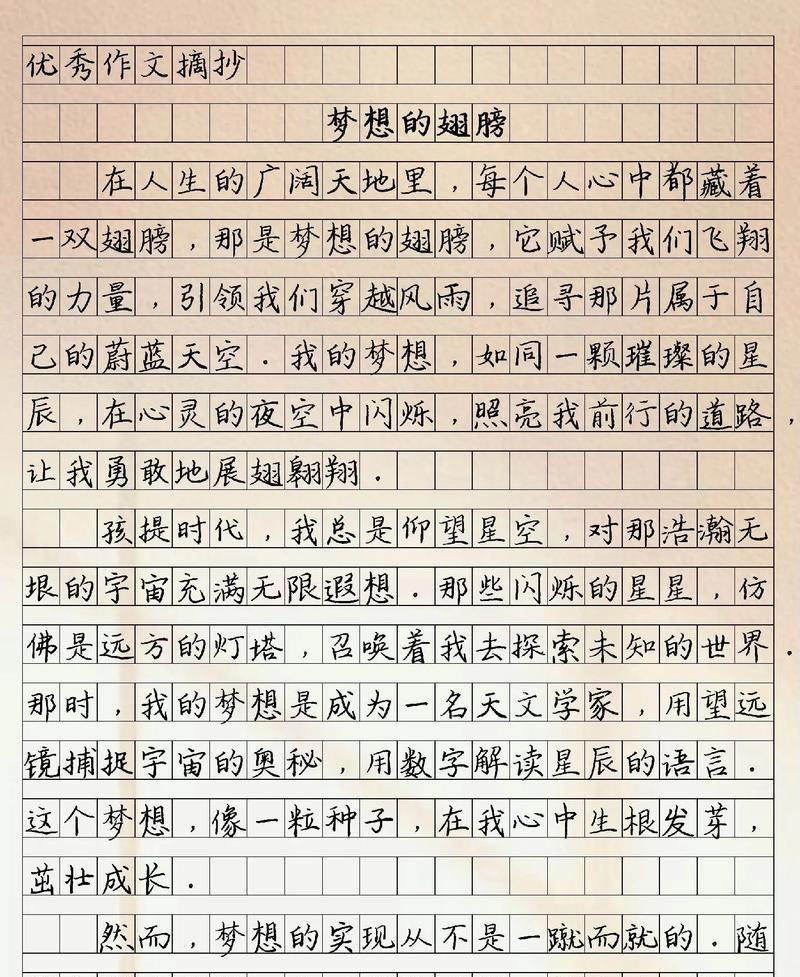 优秀作文摘抄
梦想的翅膀
在人生的广阔天地里，每个人心中都藏着
一双翅膀，那是梦想的翅膀，它赋予我们飞翔
的力量，引领我们穿越风雨，追寻那片属于自
己的蔚蓝天空．我的梦想，如同一颗璀璨的星
辰，在心灵的夜空中闪烁，照亮我前行的道路，
让我勇敢地展翅翱翔．
孩提时代，我总是仰望星空，对那浩瀚无
垠的宇宙充满无限遐想．那些闪烁的星星，仿
佛是远方的灯塔，召唤着我去探索未知的世界．
那时，我的梦想是成为一名天文学家，用望远
镜捕捉宇宙的奥秘，用数字解读星辰的语言．
这个梦想，像一粒种子，在我心中生根发芽，
茁壮成长．
然而，梦想的实现从不是一蹴而就的．随